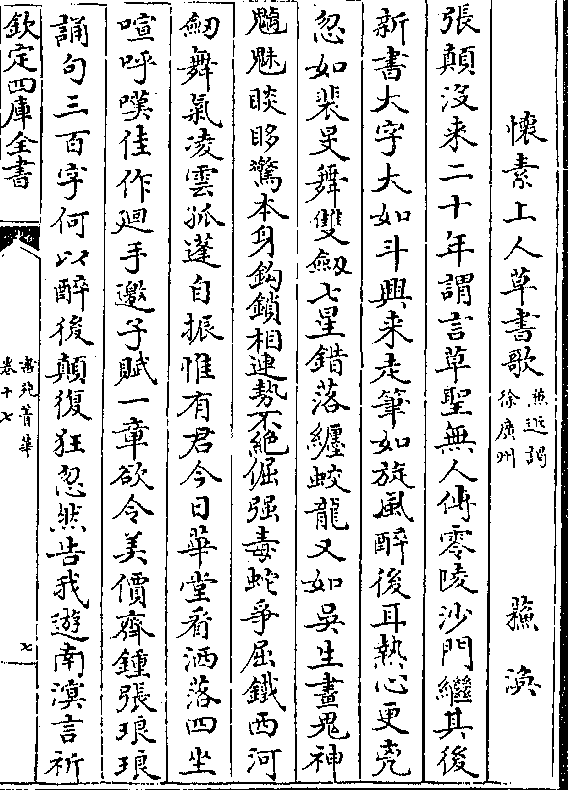 懷素上人草書歌 兼送謁徐廣州 蘇渙
張顛沒来二十年謂言草聖無人傳零陵沙門繼其後
新書大字大如斗興来走筆如旋風醉後耳熱心更㐫
忽如裴旻舞雙劔七星錯落纒蛟龍又如吳生畫鬼神
魑魅睒䀢驚本身鈎鎖相連勢不絶倔强毒蛇爭屈鐵西河
劔舞氣凌雲孤蓬自振惟有君今日華堂看洒落四坐
喧呼嘆佳作廻手邀予賦一章欲令美價齊鍾張琅琅
誦句三百字何以醉後顛復狂忽然告我遊南溟言祈
欽定四庫全書
書苑菁華
卷十七
七